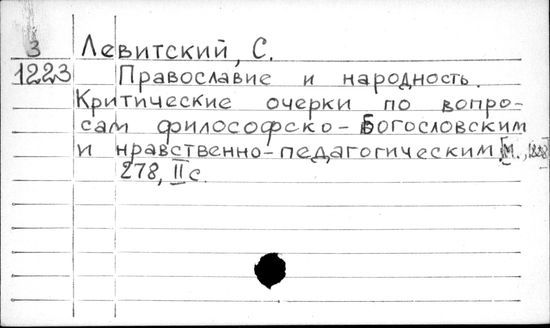 3 Левитский, С.
1223 Православие и народность.
Критические очерки по вопро-
сам философско-Богословским
и нравственно-педагогическим. [М.,
278, II с.